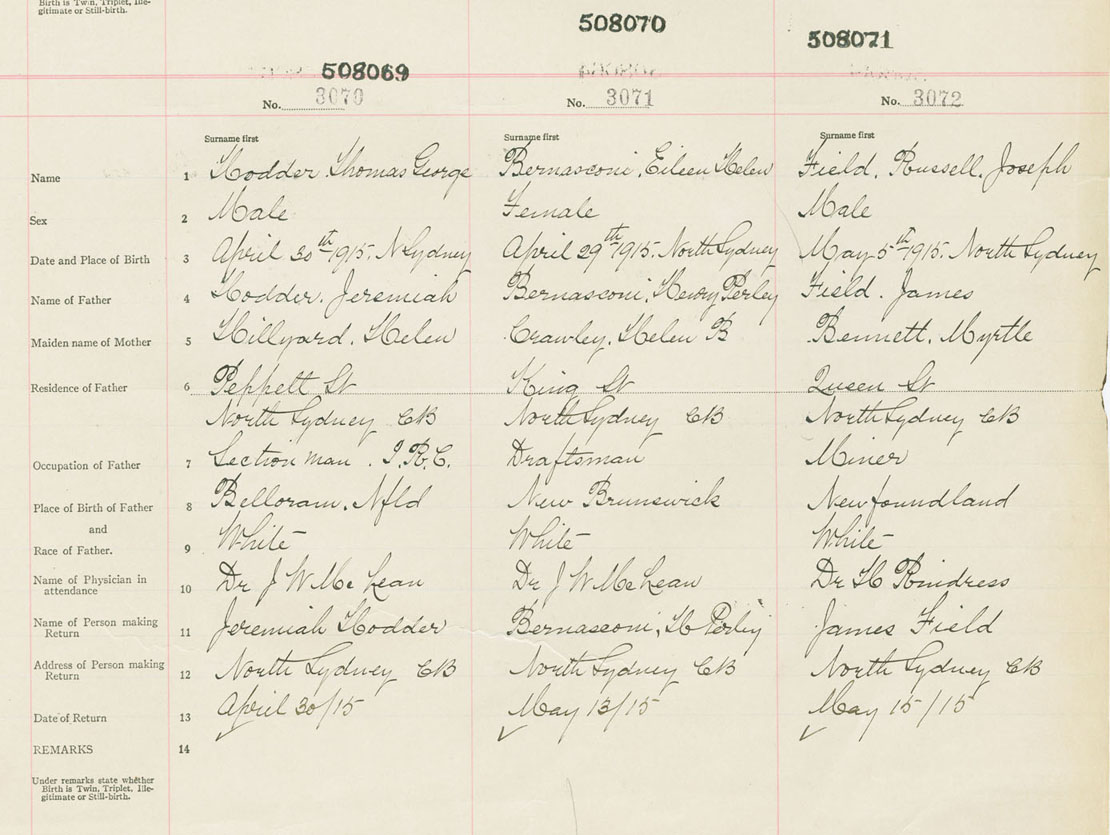 Birth is Twin, Triplet, Ille-
gitimate or Still-birth.
508069 508070 508071
No. 3070 No. 3071 No. 3072
Surname first Surname first Surname first
Name 1 Hodder. Thomas George Bernasconi, Eileen Helen Field. Russell. Joseph
Sex 2 Male Female Male
Date and Place of Birth 3 April 30th 1915. N Sydney April 29th 1915. North Sydney May 5th 1915. North Sydney
Name of Father 4 Hodder. Jeremiah Bernasconi, Henry Perley Field. James
Maiden name of Mother 5 Hillyard. Helen Crawley, Helen B Bennett. Myrtle
Residence of Father 6 Peppett St King St Queen St
North Sydney CB North Sydney CB North Sydney CB
Occupation of Father 7 Section man. I.R.C. Draftsman Miner
Place of Birth of Father 8 Belloram. Nfld New Brunswick Newfoundland
and
Race of Father. 9 White White White
Name of Physician in
attendance 10 Dr J W McLean Dr J W McLean Dr H Rindress
Name of Person making
Return 11 Jeremiah Hodder Bernasconi, H Perley James Field
Address of Person making
Return 12 North Sydney CB North Sydney CB North Sydney CB
Date of Return 13 April 30/15 May 13/15 May 15/15
REMARKS 14
Under remarks state whether
Birth is Twin, Triplet, Ille-
gitimate or Still-birth.